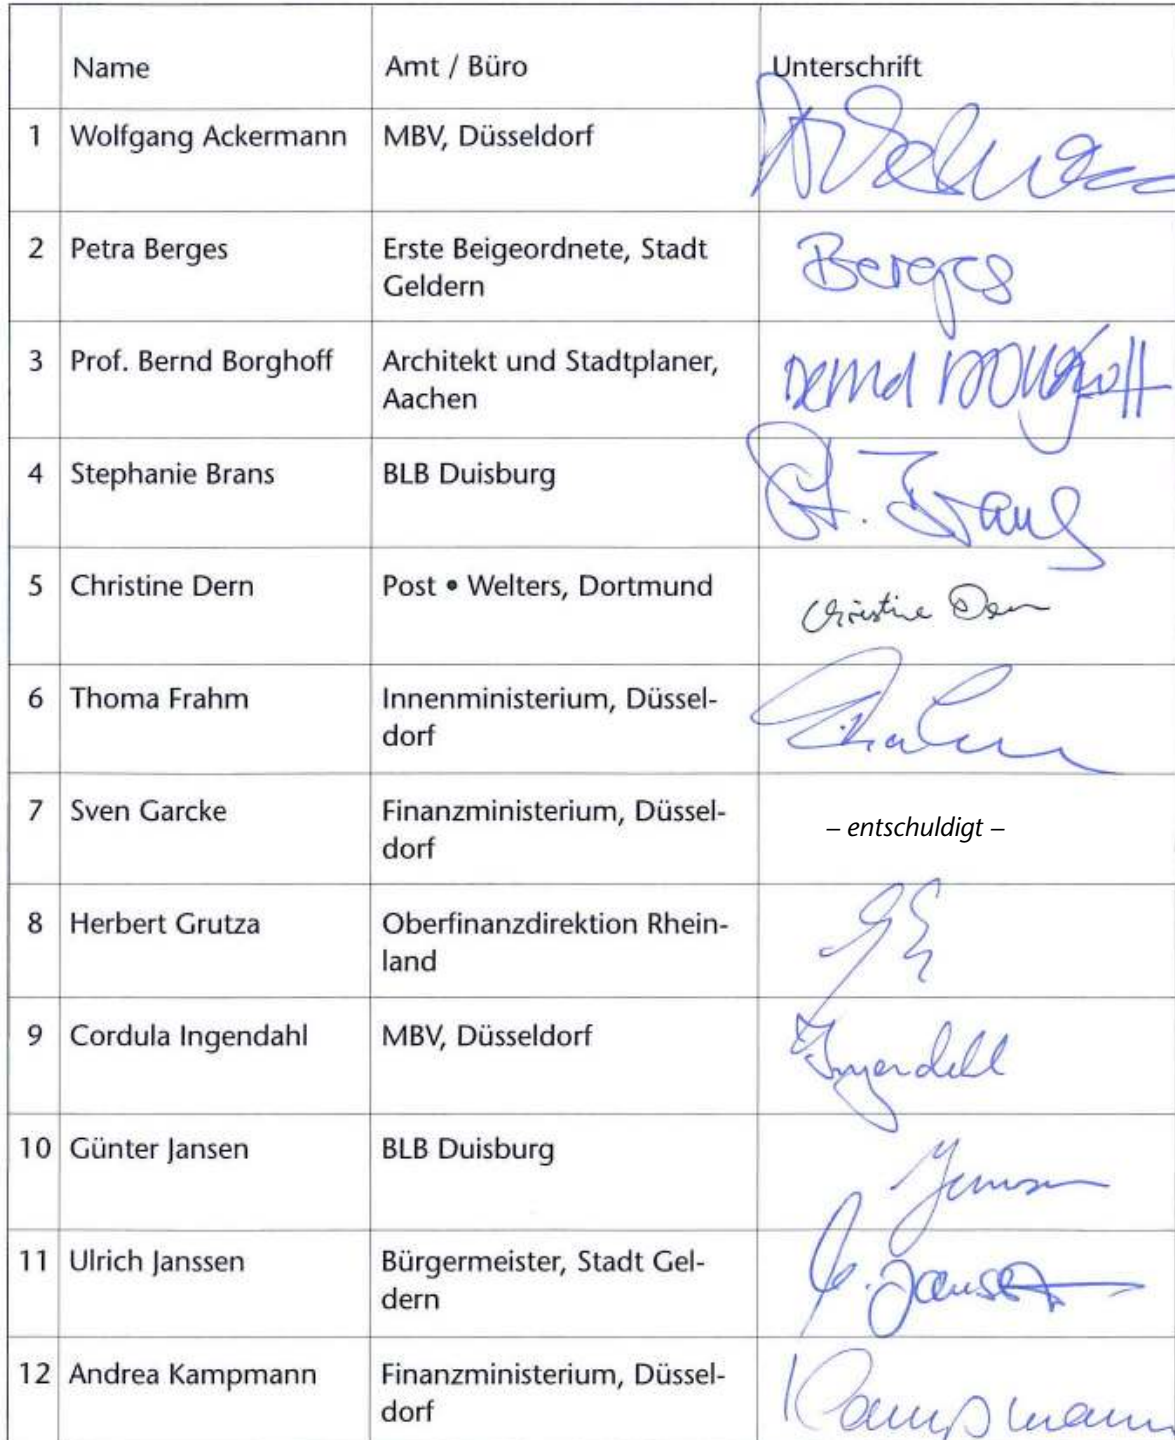 Name Amt / Büro Unterschrift
1 Wolfgang Ackermann MBV, Düsseldorf
2 Petra Berges Erste Beigeordnete, Stadt Berges
Geldern
3 Prof. Bernd Borghoff Architekt und Stadtplaner, Bernd Borghoff
Aachen
4 Stephanie Brans BLB Duisburg St. Brans
5 Christine Dern Post • Welters, Dortmund Christine Dern
6 Thoma Frahm Innenministerium, Düssel-
dorf
7 Sven Garcke Finanzministerium, Düssel- – entschuldigt –
dorf
8 Herbert Grutza Oberfinanzdirektion Rhein-
land
9 Cordula Ingendahl MBV, Düsseldorf Ingendahl
10 Günter Jansen BLB Duisburg Jansen
11 Ulrich Janssen Bürgermeister, Stadt Gel-
dern
12 Andrea Kampmann Finanzministerium, Düssel- Kampmann
dorf